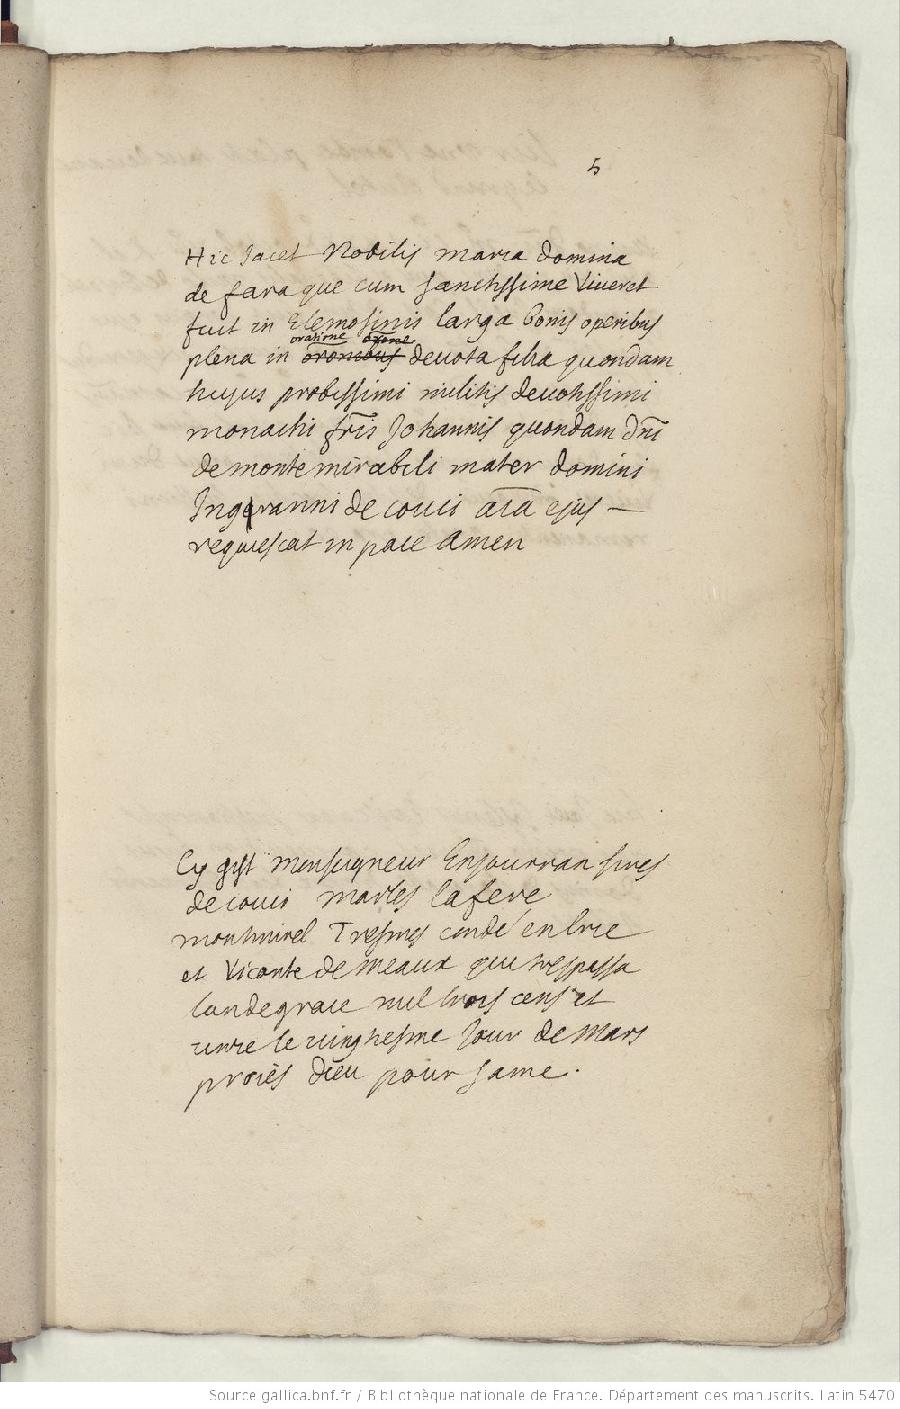 5
Hic Jacet Nobilis maria domina
de fara que cum sanctissime Viveret
fuit in Elemosinis larga bonis operibus
oratione
plena in oronibus devota filia quondam
hujus probissimi militis devotissimi
monachi fris Johannis quondam dni
de montemirabili mater domini
Ingeranni de couci aia ejus
requiescat in pace Amen
Cy gist monseigneur Enjourran sires
de couci marles lafere
montmirel Tresmes condé en brie
et Viconte de meaux qui trespassa
lan de grace mil trois cens et
unze le vingtiesme Jour de Mars
priés dieu pour same.
Source gallica.bnf.fr / Bibliothèque nationale de France. Département des manuscrits. Latin 5470